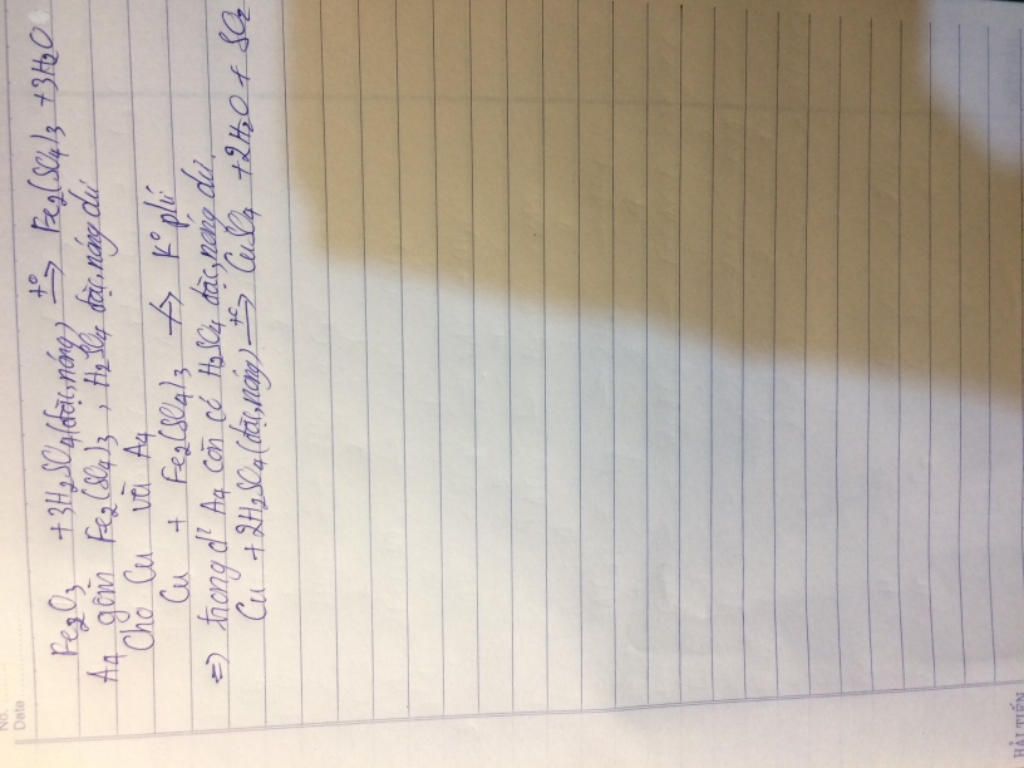 No.
Date
Fe2O3 + 3H2SO4(đặc,nóng) —t°→ Fe2(SO4)3 + 3H2O
A4 gồm Fe2(SO4)3, H2SO4 đặc,nóng dư
Cho Cu với A4
Cu + Fe2(SO4)3 -/-> K° p/ứ
=> trong d² A4 còn có H2SO4 đặc,nóng dư.
Cu + 2H2SO4(đặc,nóng) —t°→ CuSO4 + 2H2O + SO2
HẢI TIẾN